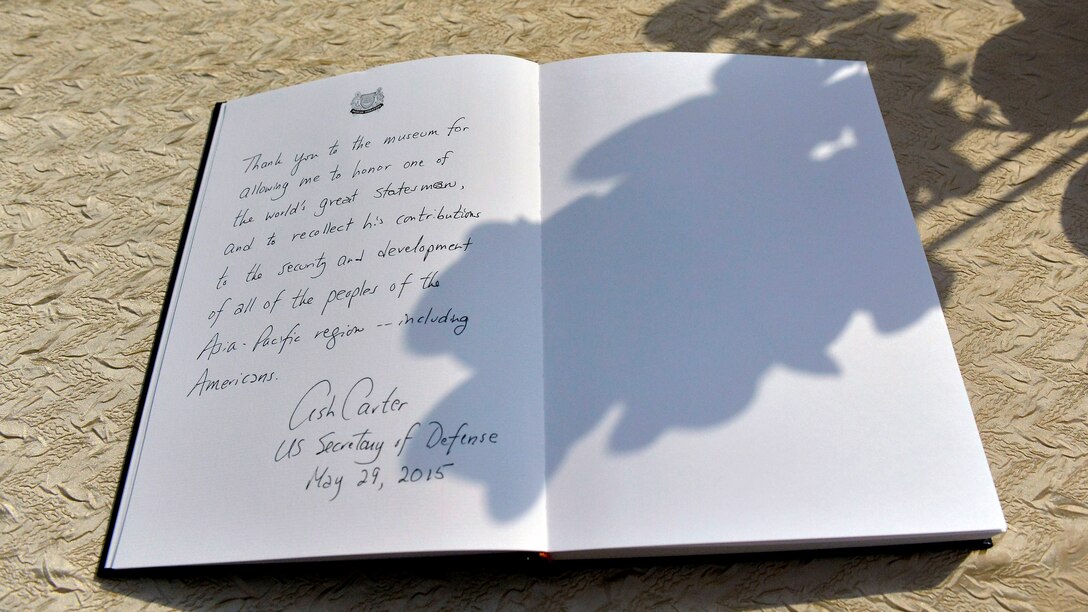 Thank you to the museum for
allowing me to honor one of
the world's great statesmen,
and to recollect his contributions
to the security and development
of all of the peoples of the
Asia-Pacific region -- including
Americans.
Ash Carter
US Secretary of Defense
May 29, 2015